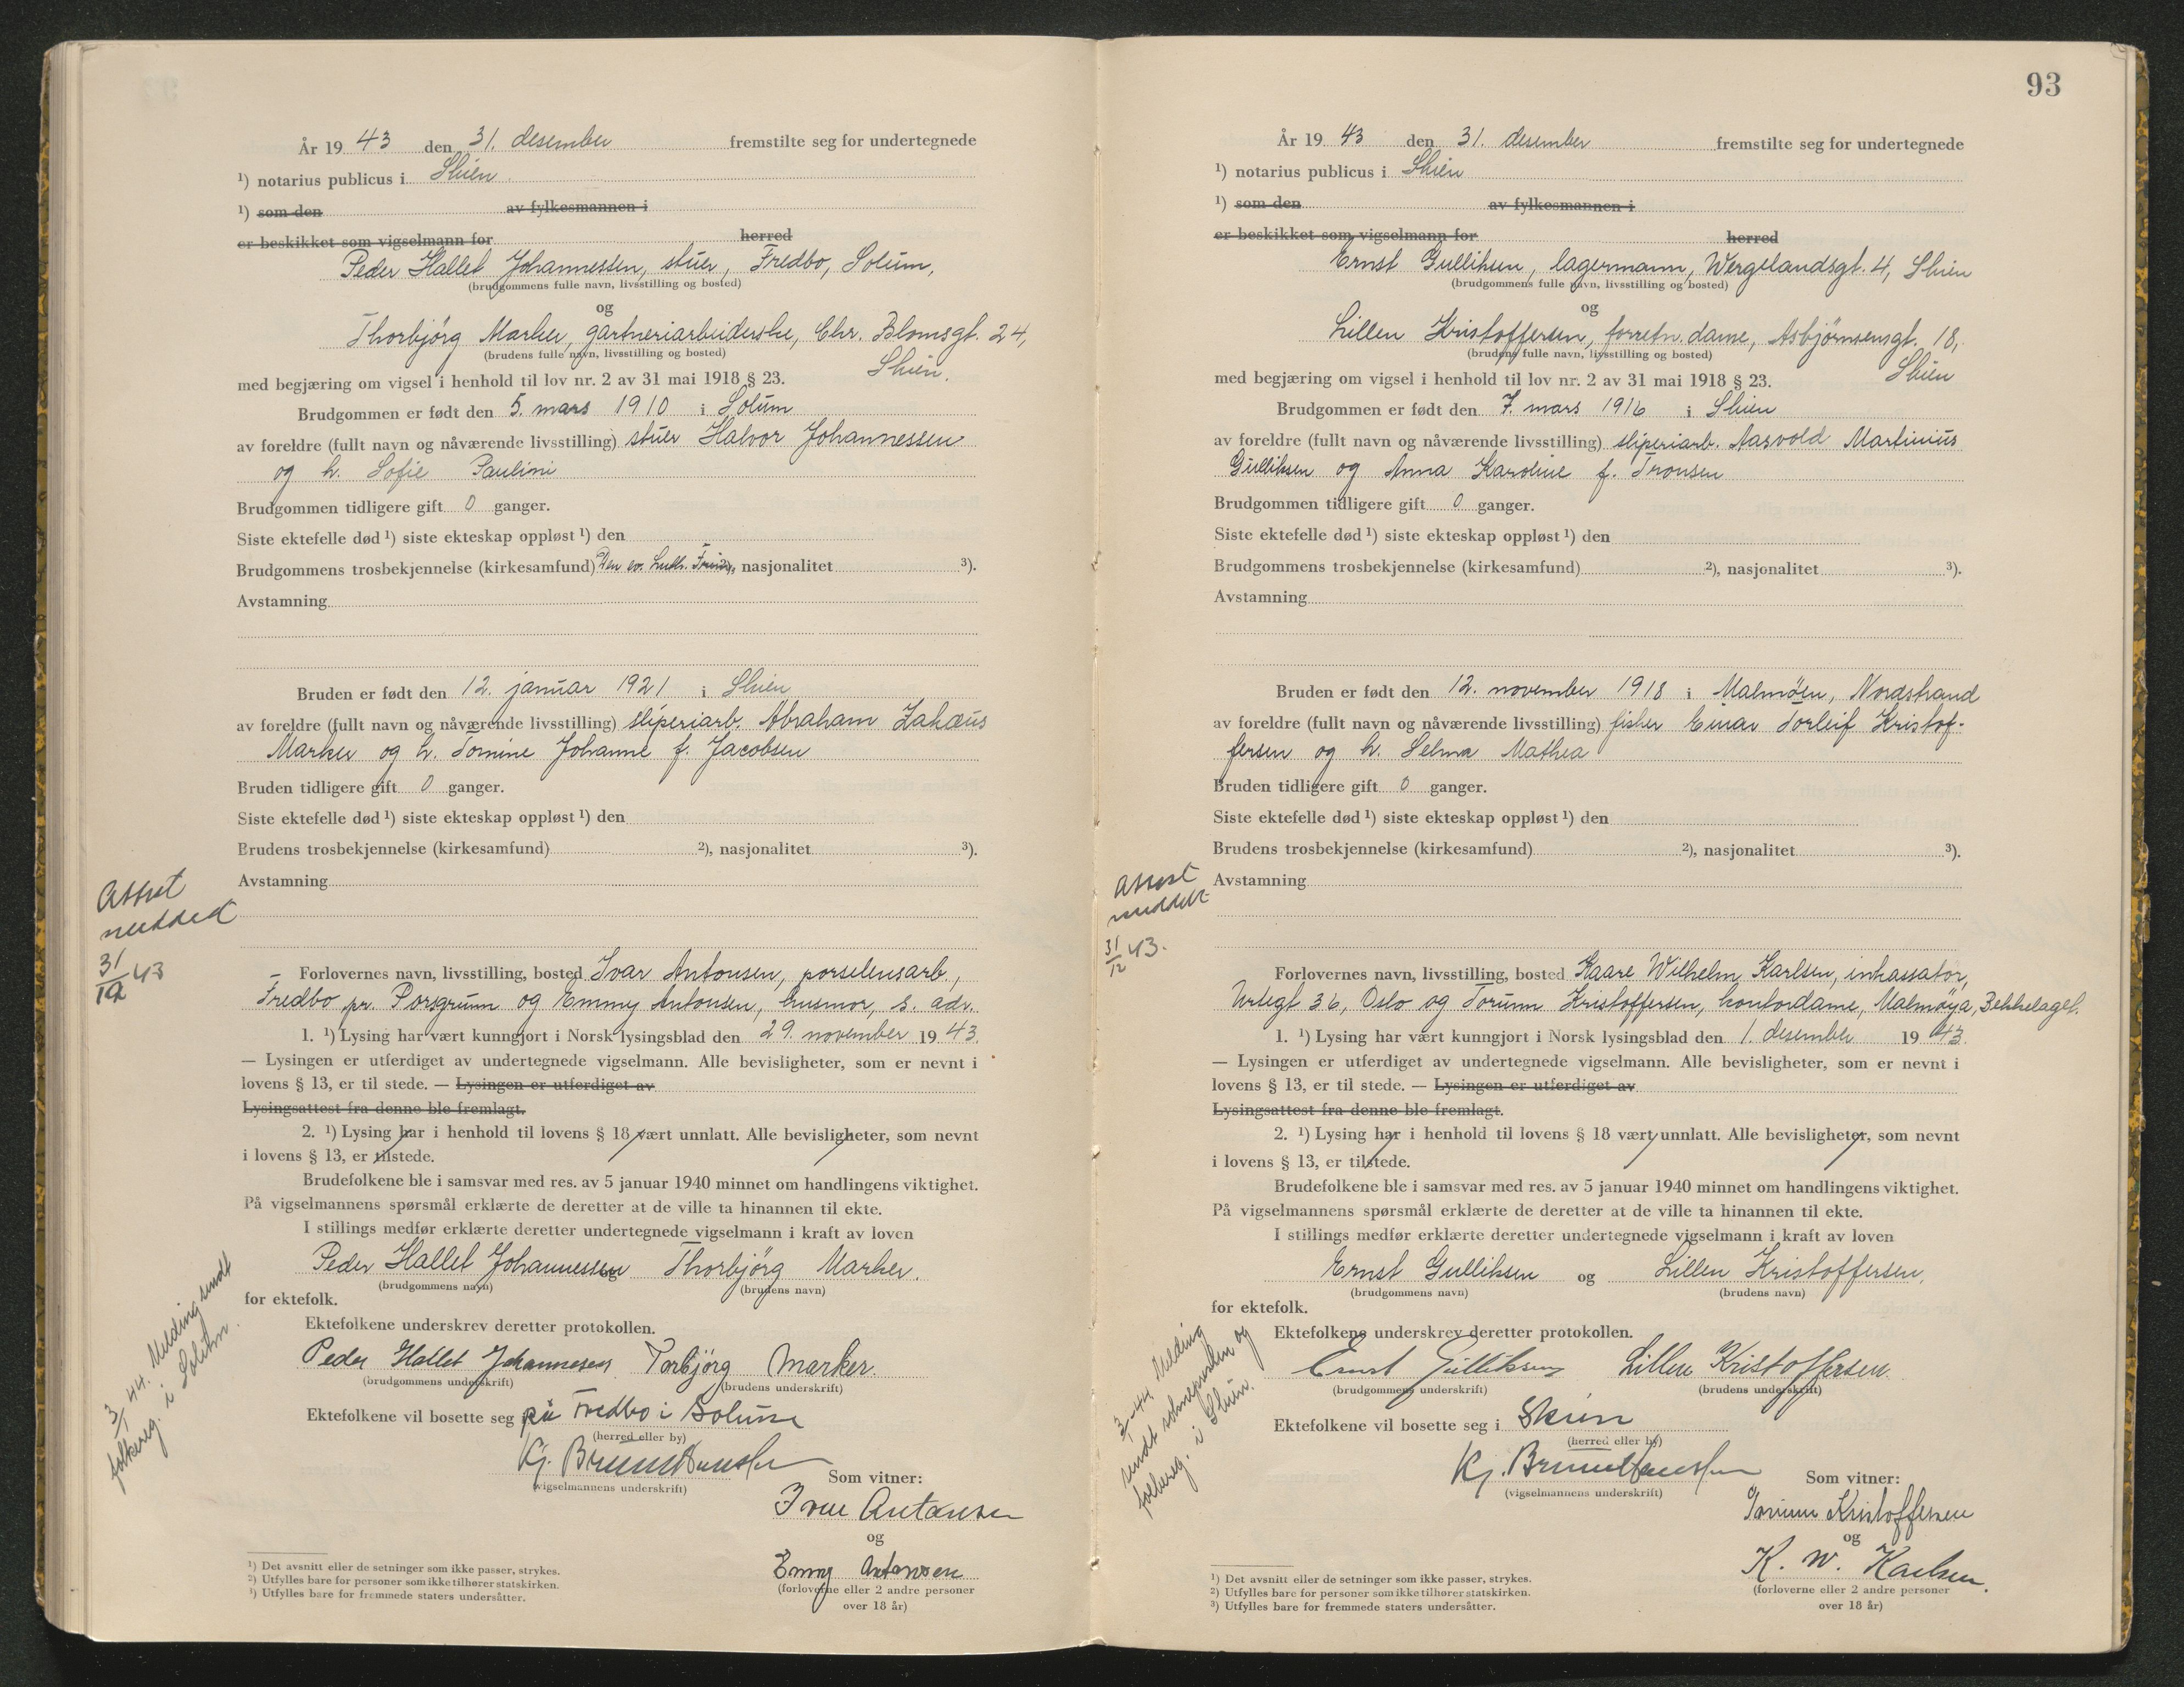 År 19 43 den 31. desember fremstilte seg for undertegnede
¹) notarius publicus i Skien
¹) som den av fylkesmannen i
er beskikket som vigselmann for herred
Peder Hallet Johannessen, stuer, Fredbo, Solum,
(brudgommens fulle navn, livsstilling og bosted)
og
Thorbjörg Marker, gartneriarbeiderske, Chr. Blomsgt. 24,
(brudens fulle navn, livsstilling og bosted)
Skien.
med begjæring om vigsel i henhold til lov nr. 2 av 31 mai 1918 § 23.
Brudgommen er født den 5. mars 1910 i Solum
av foreldre (fullt navn og nåværende livsstilling) stuer Halvor Johannessen
og h. Sofie Paulini
Brudgommen tidligere gift 0 ganger.
Siste ektefelle død ¹) siste ekteskap oppløst ¹) den
Brudgommens trosbekjennelse (kirkesamfund) Den ev. luth. nasjonalitet ³).
Avstamning
Bruden er født den 12. januar 1921 i Skien
av foreldre (fullt navn og nåværende livsstilling) sliperiarb. Abraham Zakæus
Marker og h. Tomine Johanne f. Jacobsen
Bruden tidligere gift 0 ganger.
Siste ektefelle død ¹) siste ekteskap oppløst ¹) den
Brudens trosbekjennelse (kirkesamfund) ²), nasjonalitet ³).
Avstamning
Attest
meddelt
31/12 43
Forlovernes navn, livsstilling, bosted Ivar Antonsen, porselensarb.,
Fredbo pr. Porsgrunn og Emmy Antonsen, husmor, s. adr.
1. ¹) Lysing har vært kunngjort i Norsk lysingsblad den 29. november 19 43.
— Lysingen er utferdiget av undertegnede vigselmann. Alle bevisligheter, som er nevnt i
lovens § 13, er til stede. — Lysingen er utferdiget av
Lysingsattest fra denne ble fremlagt.
2. ¹) Lysing har i henhold til lovens § 18 vært unnlatt. Alle bevisligheter, som nevnt
i lovens § 13, er tilstede.
Brudefolkene ble i samsvar med res. av 5 januar 1940 minnet om handlingens viktighet.
På vigselmannens spørsmål erklærte de deretter at de ville ta hinannen til ekte.
I stillings medfør erklærte deretter undertegnede vigselmann i kraft av loven
Peder Hallet Johannessen og Thorbjörg Marker.
(brudgommens navn) (brudens navn)
for ektefolk.
3/1 44. Melding sendt
folkereg. i Solum.
Ektefolkene underskrev deretter protokollen.
Peder Hallet Johannesen Torbjörg Marker.
(brudgommens underskrift) (brudens underskrift)
Ektefolkene vil bosette seg på Fredbo i Solum
(herred eller by)
(vigselmannens underskrift)
Som vitner:
Ivar Antonsen
og
Emmy Antonsen
(forloverne eller 2 andre personer
over 18 år)
¹) Det avsnitt eller de setninger som ikke passer, strykes.
²) Utfylles bare for personer som ikke tilhører statskirken.
³) Utfylles bare for fremmede staters undersåtter.
93
År 19 43 den 31. desember fremstilte seg for undertegnede
¹) notarius publicus i Skien
¹) som den av fylkesmannen i
er beskikket som vigselmann for herred
Ernst Gulliksen, lagermann, Wergelandsgt. 4, Skien
(brudgommens fulle navn, livsstilling og bosted)
og
Lillen Kristoffersen, forretn. dame, Asbjørnsensgt. 18,
(brudens fulle navn, livsstilling og bosted)
Skien
med begjæring om vigsel i henhold til lov nr. 2 av 31 mai 1918 § 23.
Brudgommen er født den 7. mars 1916 i Skien
av foreldre (fullt navn og nåværende livsstilling) sliperiarb. Aasvold Martinius
Gulliksen og Anna Karoline f. Tronsen
Brudgommen tidligere gift 0 ganger.
Siste ektefelle død ¹) siste ekteskap oppløst ¹) den
Brudgommens trosbekjennelse (kirkesamfund) ²), nasjonalitet ³).
Avstamning
Bruden er født den 12. november 1918 i Malmøen, Nordstrand
av foreldre (fullt navn og nåværende livsstilling) fisker Einar Torleif Kristof-
fersen og h. Selma Mathea
Bruden tidligere gift 0 ganger.
Siste ektefelle død ¹) siste ekteskap oppløst ¹) den
Brudens trosbekjennelse (kirkesamfund) ²), nasjonalitet ³).
Avstamning
Attest
meddelt
31/12 43.
Forlovernes navn, livsstilling, bosted Kaare Wilhelm Karlsen, inkassator,
Urtegt 36, Oslo og Torunn Kristoffersen, kontordame, Malmøya, Bekkelaget.
1. ¹) Lysing har vært kunngjort i Norsk lysingsblad den 1. desember 19 43.
— Lysingen er utferdiget av undertegnede vigselmann. Alle bevisligheter, som er nevnt i
lovens § 13, er til stede. — Lysingen er utferdiget av
Lysingsattest fra denne ble fremlagt.
2. ¹) Lysing har i henhold til lovens § 18 vært unnlatt. Alle bevisligheter, som nevnt
i lovens § 13, er tilstede.
Brudefolkene ble i samsvar med res. av 5 januar 1940 minnet om handlingens viktighet.
På vigselmannens spørsmål erklærte de deretter at de ville ta hinannen til ekte.
I stillings medfør erklærte deretter undertegnede vigselmann i kraft av loven
Ernst Gulliksen og Lillen Kristoffersen,
(brudgommens navn) (brudens navn)
for ektefolk.
3/1-44 Melding
sendt sokneprsten og
folkereg. i Skien.
Ektefolkene underskrev deretter protokollen.
Ernst Gulliksen Lillen Kristoffersen.
(brudgommens underskrift) (brudens underskrift)
Ektefolkene vil bosette seg i Skien
(herred eller by)
(vigselmannens underskrift)
Som vitner:
Torunn Kristoffersen
og
K. W. Karlsen.
(forloverne eller 2 andre personer
over 18 år)
¹) Det avsnitt eller de setninger som ikke passer, strykes.
²) Utfylles bare for personer som ikke tilhører statskirken.
³) Utfylles bare for fremmede staters undersåtter.